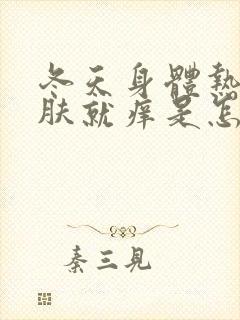 冬天身體熱
肤就痒是怎
秦三見